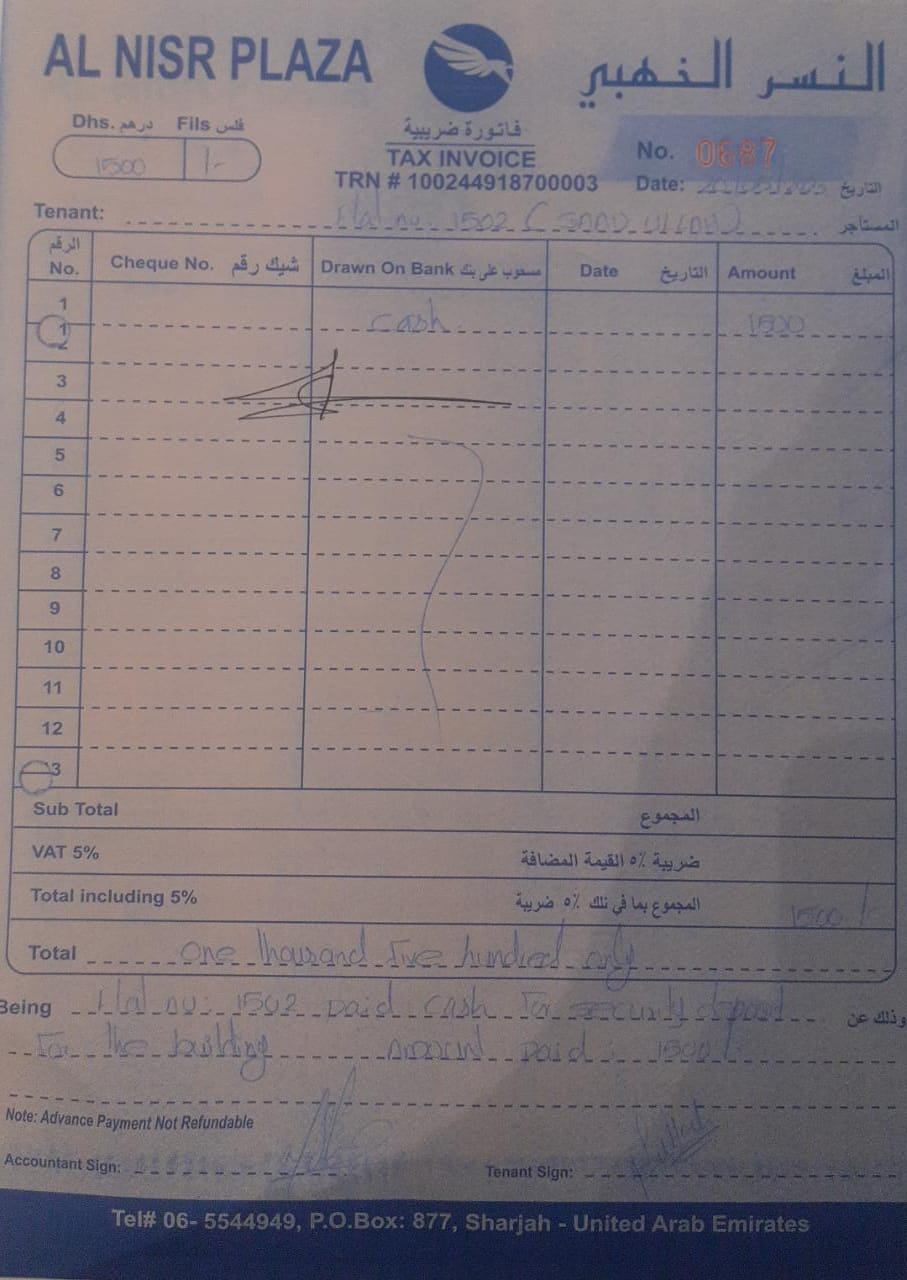 AL NISR PLAZA
النسر الذهبي
Dhs. درهم Fils فلس
1500 /-
فاتورة ضريبية
TAX INVOICE
TRN # 100244918700003
No. 0687
Date: التاريخ
Tenant: Flat no. 1502 ( المستأجر
الرقم No. Cheque No. شيك رقم Drawn On Bank مسحوب على بنك Date التاريخ Amount المبلغ
1 cash 1500
2
3
4
5
6
7
8
9
10
11
12
13
Sub Total المجموع
VAT 5% ضريبة ٥٪ القيمة المضافة
Total including 5% المجموع بما في ذلك ٥٪ ضريبة 1500 /-
Total one thousand five hundred only
Being Flat no: 1502 paid cash for security deposit وذلك عن
for the building amount paid: 1500/-
Note: Advance Payment Not Refundable
Accountant Sign: Tenant Sign:
Tel# 06- 5544949, P.O.Box: 877, Sharjah - United Arab Emirates